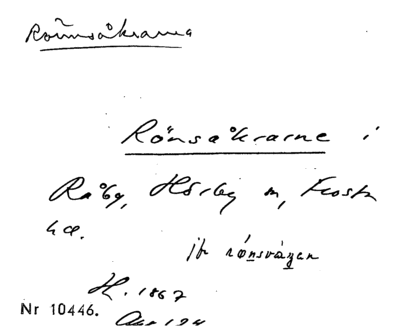 Rönsåkrarna
Rönsåkrarne i
Råby, Hörby sn, Frosta
hd.
jfr rönsvägen
H. 1867
Nr 10446.